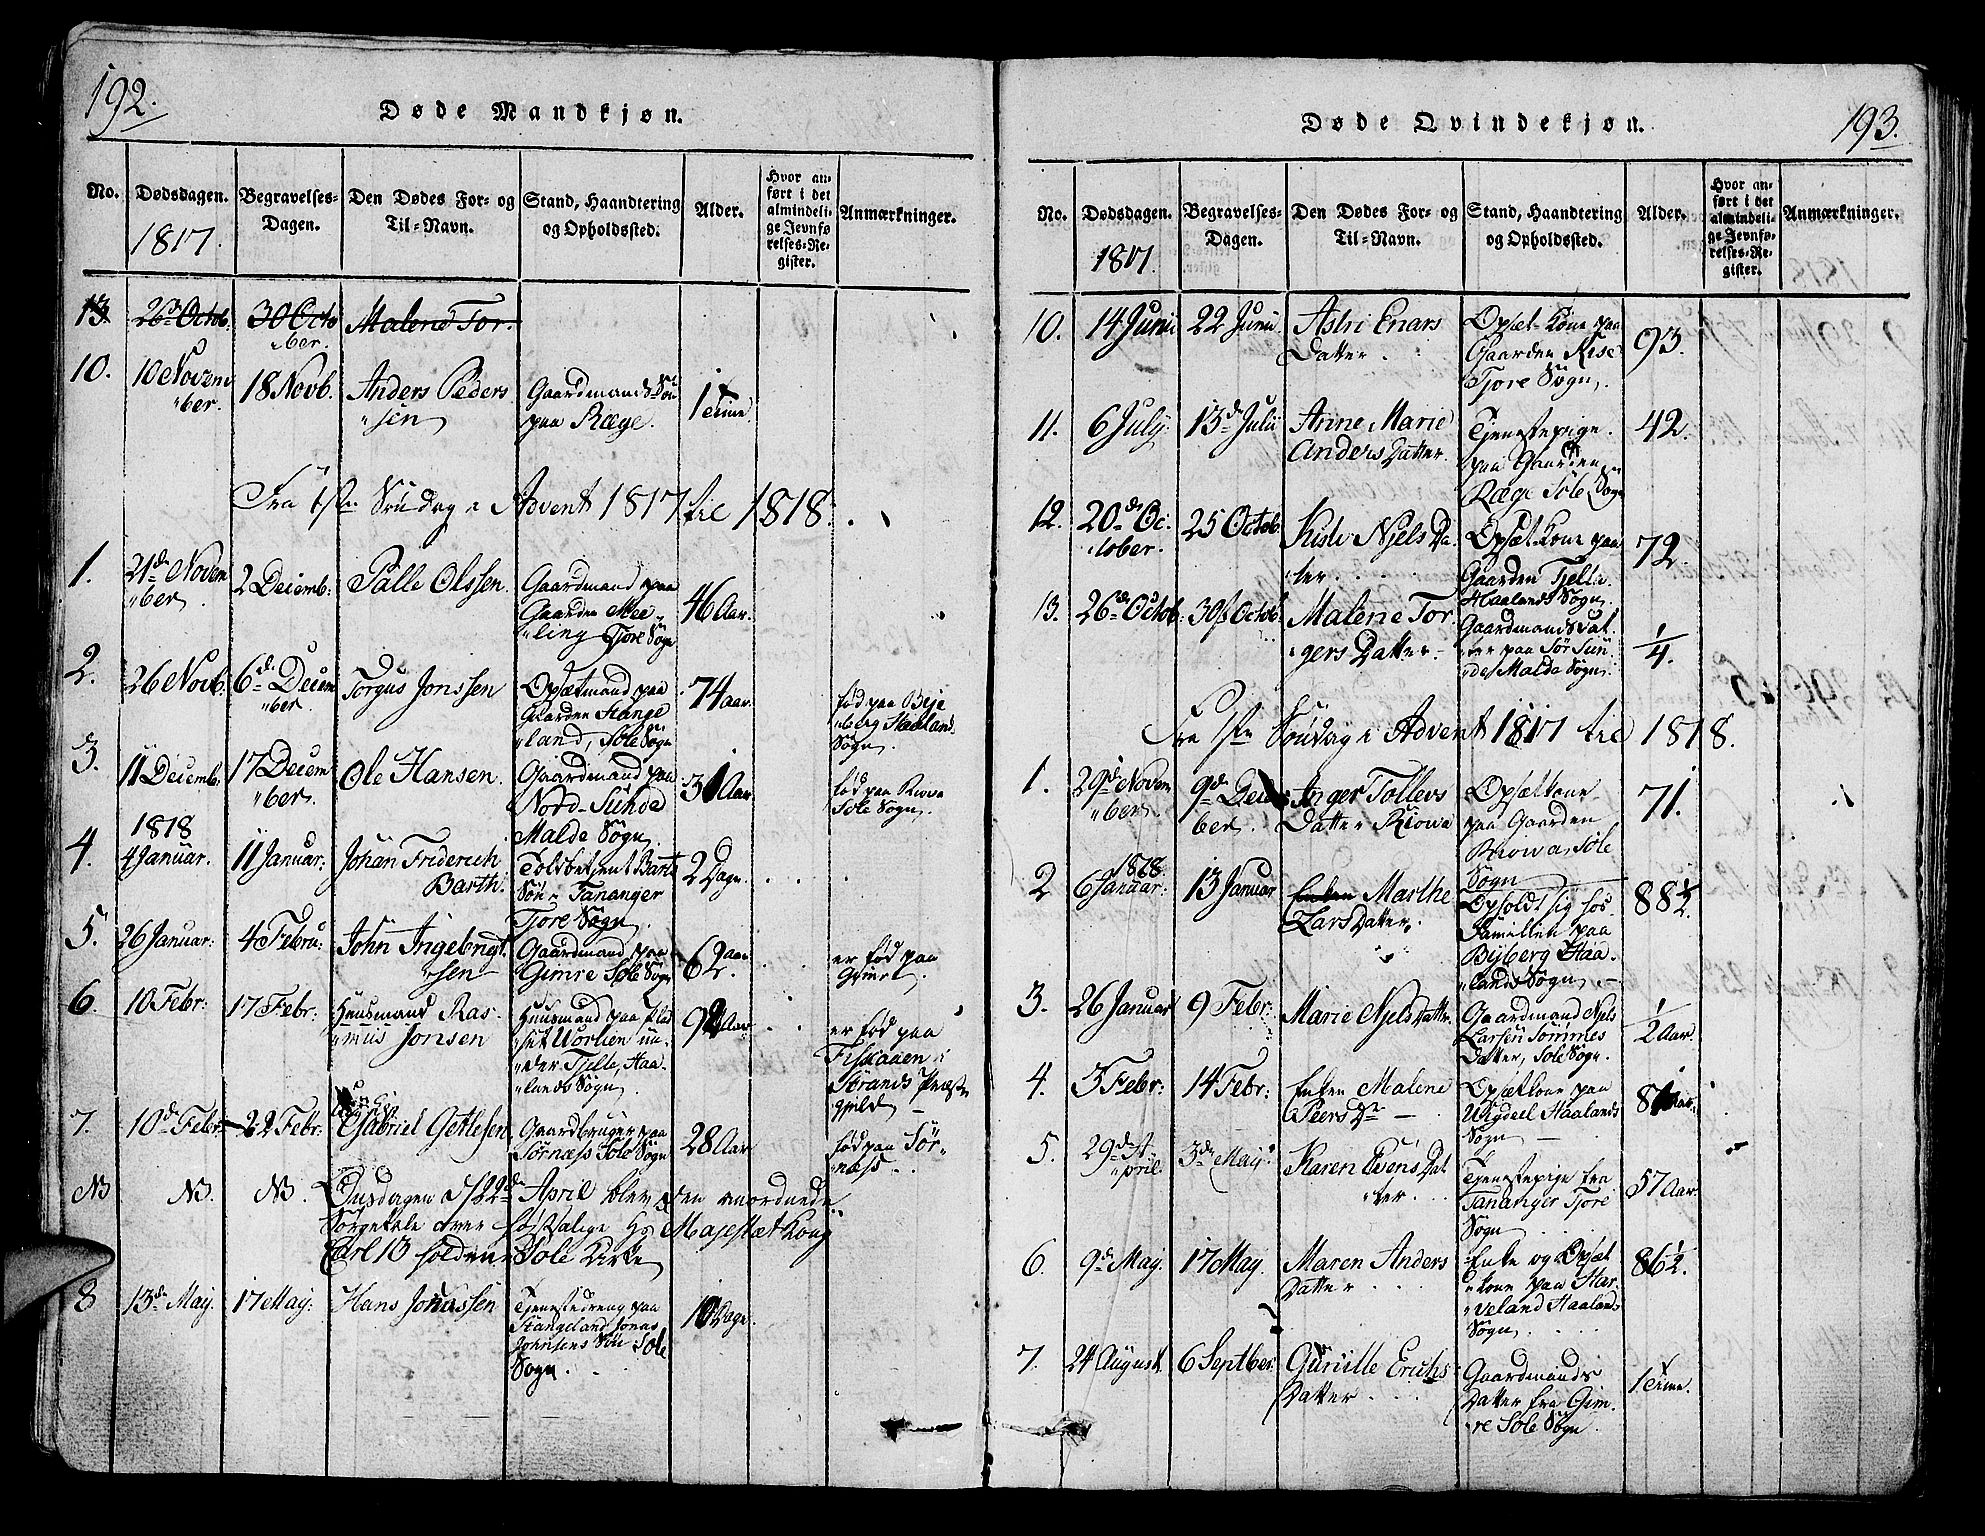 192.
Døde Mandkjøn.
No.
Dødsdagen.
1817.
Begravelses-
Dagen.
Den Dødes For- og
Til-Navn.
Stand, Haandtering
og Opholdssted.
Alder.
Hvor an-
ført i det
almindeli-
ge Jevnfø-
relses-Re-
gister.
Anmærkninger.
13 26d Octob. 30 Octo
"ber.
Malene Tor-
10.
10 Novem
"ber.
18 Novb.
Anders Peders
"sen
Gaardmands Søn
paa Ræge.
1 Time
Fra 1ste Søndag i Advent 1817 til 1818.
1.
21de Novem
"ber
2 Decemb:
Palle Olssen
Gaardmand paa
Gaarden Mee-
"ling Tjore Sogn
46 Aar.
2.
26 Novb.
6de Decem
"ber.
Torgus Jonssen
Opsætmand paa
Gaarden Stange
"land, Sole Sogn
74 Aar.
fød paa Beje
"berg Haalands
Sogn.
3.
11 Decemb:
17 Decem
"ber.
Ole Hansen.
Gaardmand paa
Nord-Sunde
Malde Sogn.
31 Aar
fød paa
Sole Sogn.
4.
1818
4 Januar.
11 Januar.
Johan Friderich
Barth.
Toldbetjent Barts
Søn - Tananger
Tjore Sogn
2 Dage
5.
26 Januar:
4 Febru:
John Ingebrigt
"sen
Gaardmand paa
Gimre Sole Sogn
62 Aar.
er fød paa
6.
10 Febr:
17 Febr:
Huusmand Ras-
"mus Jonsen
Huusmand paa Plad
"set un-
"der Tjelle, Haa-
"lands Sogn
Aar
er fød paa
Fiskaaen i
Strands Præste
gjeld
7.
10de Febr
22 Febr:
Gabriel Getlesen
Gaardbruger paa
Sørnæss Sole Sogn
28 Aar
fød paa Sør-
"næss.
NB NB. NB. Onsdagen d/22de April blev den anordnede
Sørgetale over høistsalige Hs Majestæt Kong
Carl 13 holden i Sole Kirke
8
13de May.
17 May:
Hans Jonassen
Tjenestedreng paa
Stangeland Jonas
Johnsens Søn Sole
Sogn
10 Dage
193.
Døde Qvindekjøn.
No.
Dødsdagen.
1817.
Begravelses-
Dagen.
Den Dødes For- og
Til-Navn.
Stand, Haandtering
og Opholdssted.
Alder.
Hvor an-
ført i det
almindeli-
ge Jevnfø-
relses-Re-
gister.
Anmærkninger.
10.
14 Junii
22 Junii
Astri Enars
Datter
Opsæt-kone paa
Gaarden Rise
Tjore Sogn
93.
11.
6 July.
13de Julii
Anne Marie
Anders Datter.
Tjenestepige
paa Gaarden
Ræge Sole Sogn
42.
12.
20de Oc-
"tober.
25 Octob.
Njels Da
"ter
Opsæt-kone paa
Gaarden Tjelle
Haalands Sogn.
72.
13.
26de Octob.
30te Octob.
Malene Tor-
"gers Datter
Gaardmands Dat
"ter paa Sør Sun
"de Malde Sogn.
1/4.
Fra 1ste Søndag i Advent 1817 til 1818.
1.
29de Novem
"ber
9de Decem
ber.
Inger Tollevs
Datter
Opsætkone
paa Gaarden
Sole
Sogn
71.
2
1818.
6 Januar:
13 Januar
Enken Marthe
Lars Datter.
Opholdt sig hos
Familien paa
Byberg Haa-
"lands Sogn.
88 1/2.
3.
26 Januar
9 Febr:
Marie Njels Datter.
Gaardmand Njels
Larsen Sømmes
Datter, Sole Sogn.
1/2 Aar.
4.
3 Febr:
14 Febr:
Enken Malene
Peers Dr
Opsætkone paa
Wigdeel Haalands
Sogn
Aar.
5.
29de A-
"pril
3de May:
Karen Dat
"ter
Tjenestepige fra
Tananger Tjore
Sogn
57 Aar.
6.
9de May.
17 May.
Maren Anders
Datter
Enke og Opsæt
kone paa Har
"veland Haalands
Sogn
86 1/2.
7.
24 August
6 Septber.
Gunille Erichs
Datter
Gaardmands
Datter fra Gim-
"re Sole Sogn
1 Time.